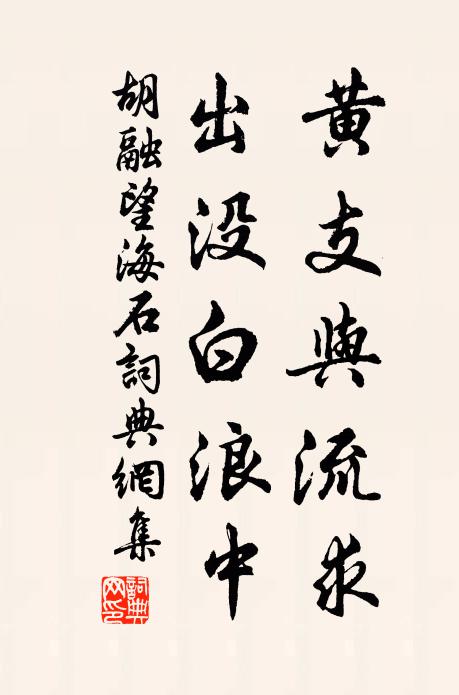 黄支與流求
出没白浪中
胡融望海石詞典網集
詞典網印